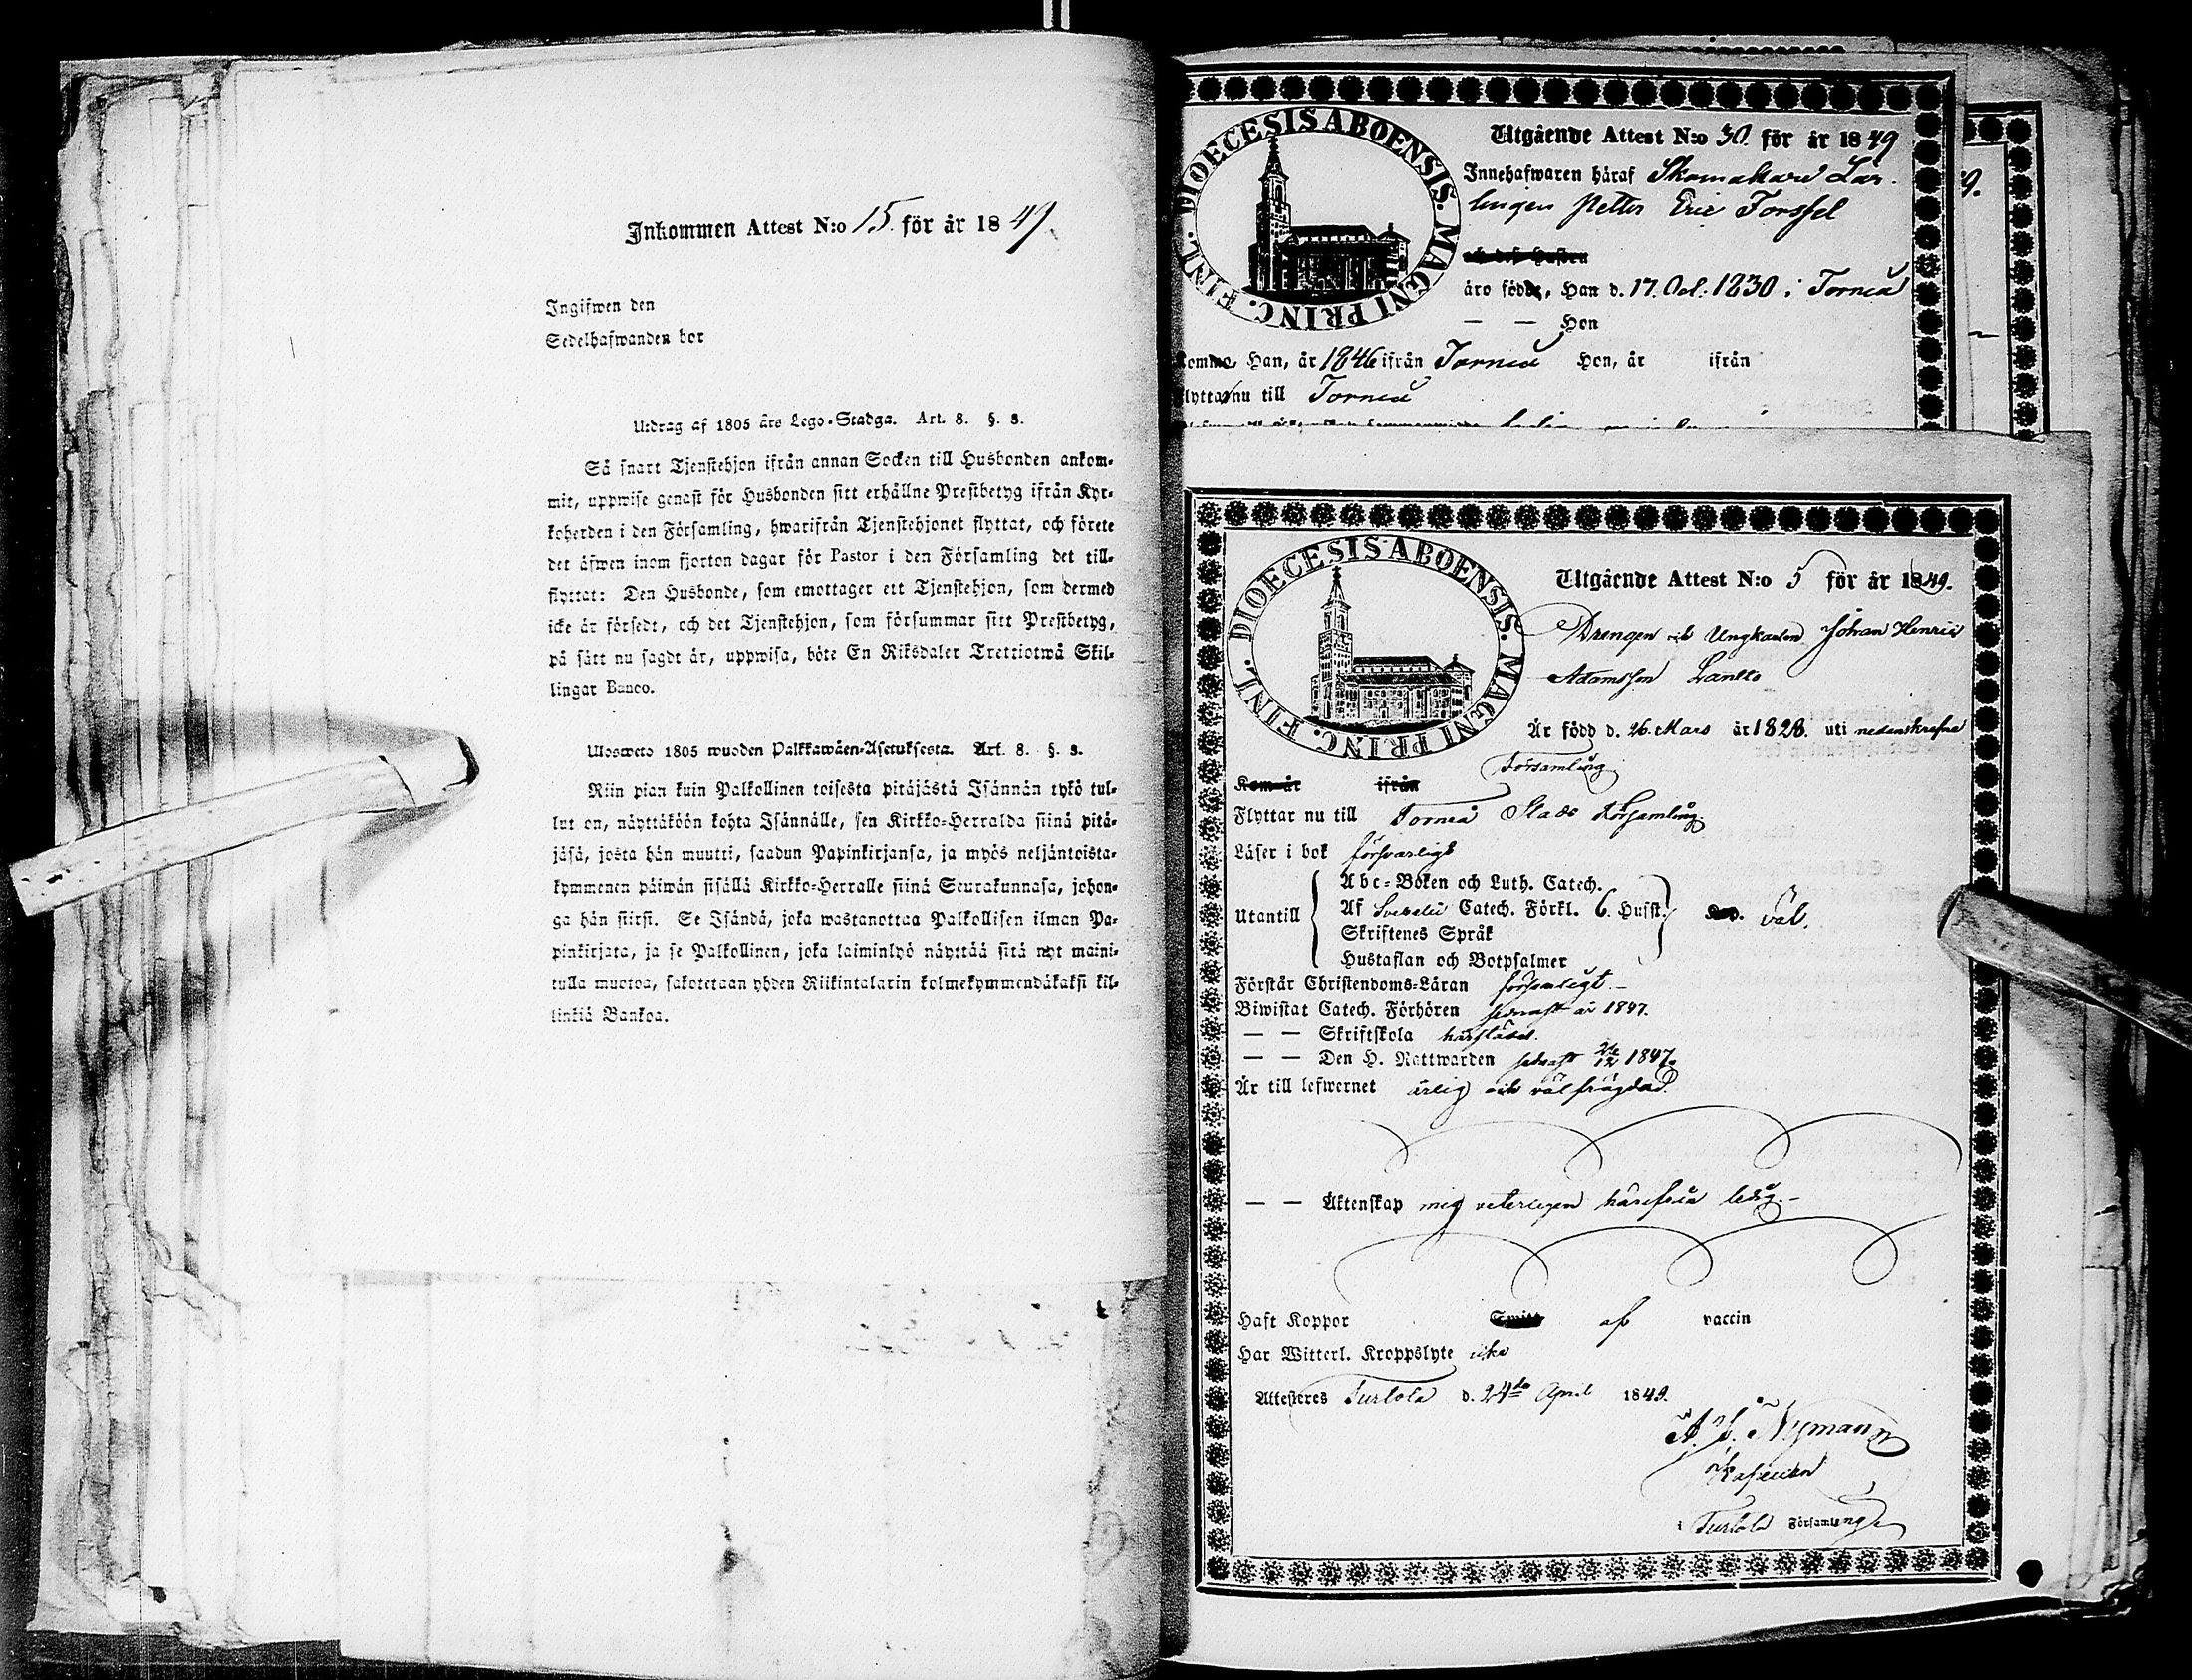 Inkommen Attest N:o 15. för år 1849.
Ingifwen den
Sedelhafwanden bor
Utdrag af 1805 års Lego-Stadga. Art. 8. §. 3.
Så snart Tjenstehjon ifrån annan Socken till Husbonden ankom-
mit, uppwise genast för Husbonden sitt erhållne Prestbetyg ifrån Kyr-
koherden i den Församling, hwarifrån Tjenstehjonet flyttat, och förete
det äfwen inom fjorton dagar för Pastor i den Församling det till-
flyttat: Den Husbonde, som emottager ett Tjenstehjon, som dermed
icke är försedt, och det Tjenstehjon, som försummar sitt Prestbetyg,
på sätt nu sagdt är, uppwisa, böte En Riksdaler Trettiotwå Skil-
lingar Banco.
Ulosweto 1805 wuoden Palkkawäen-Asetuksesta. Art. 8. §. 3.
Niin pian kuin Palkollinen toisesta pitäjästä Isännän tykö tul-
lut on, näyttäköön kohta Isännälle, sen Kirkko-Herralda siinä pitä-
jäsä, josta hän muutti, saadun Papinkirjansa, ja myös neljäntoista-
kymmenen päiwän sisällä Kirkko-Herralle siinä Seurakunnasa, johon-
ga hän siirsi. Se Isändä, joka wastanottaa Palkollisen ilman Pa-
pinkirjata, ja se Palkollinen, joka laiminlyö näyttää sitä nyt maini-
tulla muotoa, sakotetaan yhden Riikintalarin kolmekymmendäkaksi kil-
linkiä Bankoa.
DIOECESIS ABOENSIS. MAGNI PRINC. FINL.
Utgående Attest N:o 30. för år 1849
Innehafwaren häraf Skomakare Lär-
lingen Petter Eric Forssel
och dess Hustru
äro födde, Han d. 17. Oct. 1830 i Torneå
— — Hon
Komme, Han, år 1846 ifrån Torneå Hon, år ifrån
Flyttar nu till Torneå
DIOECESIS ABOENSIS. MAGNI PRINC. FINL.
Utgående Attest N:o 5 för år 1849.
Drengen och Ungkarlen Johan Henric
Adamsson Lantto
Är född d. 26. Mars år 1828. uti nedanskrefne
Församling
Kom år ifrån
Flyttar nu till Torneå Stads Församling
Läser i bok försvarligt
Utantill Abc-Boken och Luth. Catech.
Af Svebelii Catech. Förkl. 6. Hufst. väl.
Skriftenes Språk
Hustaflan och Botpsalmer
Förstår Christendoms-Läran försvarligt.-
Biwistat Catech. Förhören sednast år 1847.
— — Skriftskola
— — Den H. Nattwarden sednast 26/12 1847.
Är till lefwernet ärlig och välfrägdad.
— — Äktenskap mig veterligen härifrån ledig.-
Haft Koppor af vaccin
Har Witterl. Kroppslyte icke
Attesteres Turtola d. 24de April 1849.
A. J. Nyman
i Turtola Församling